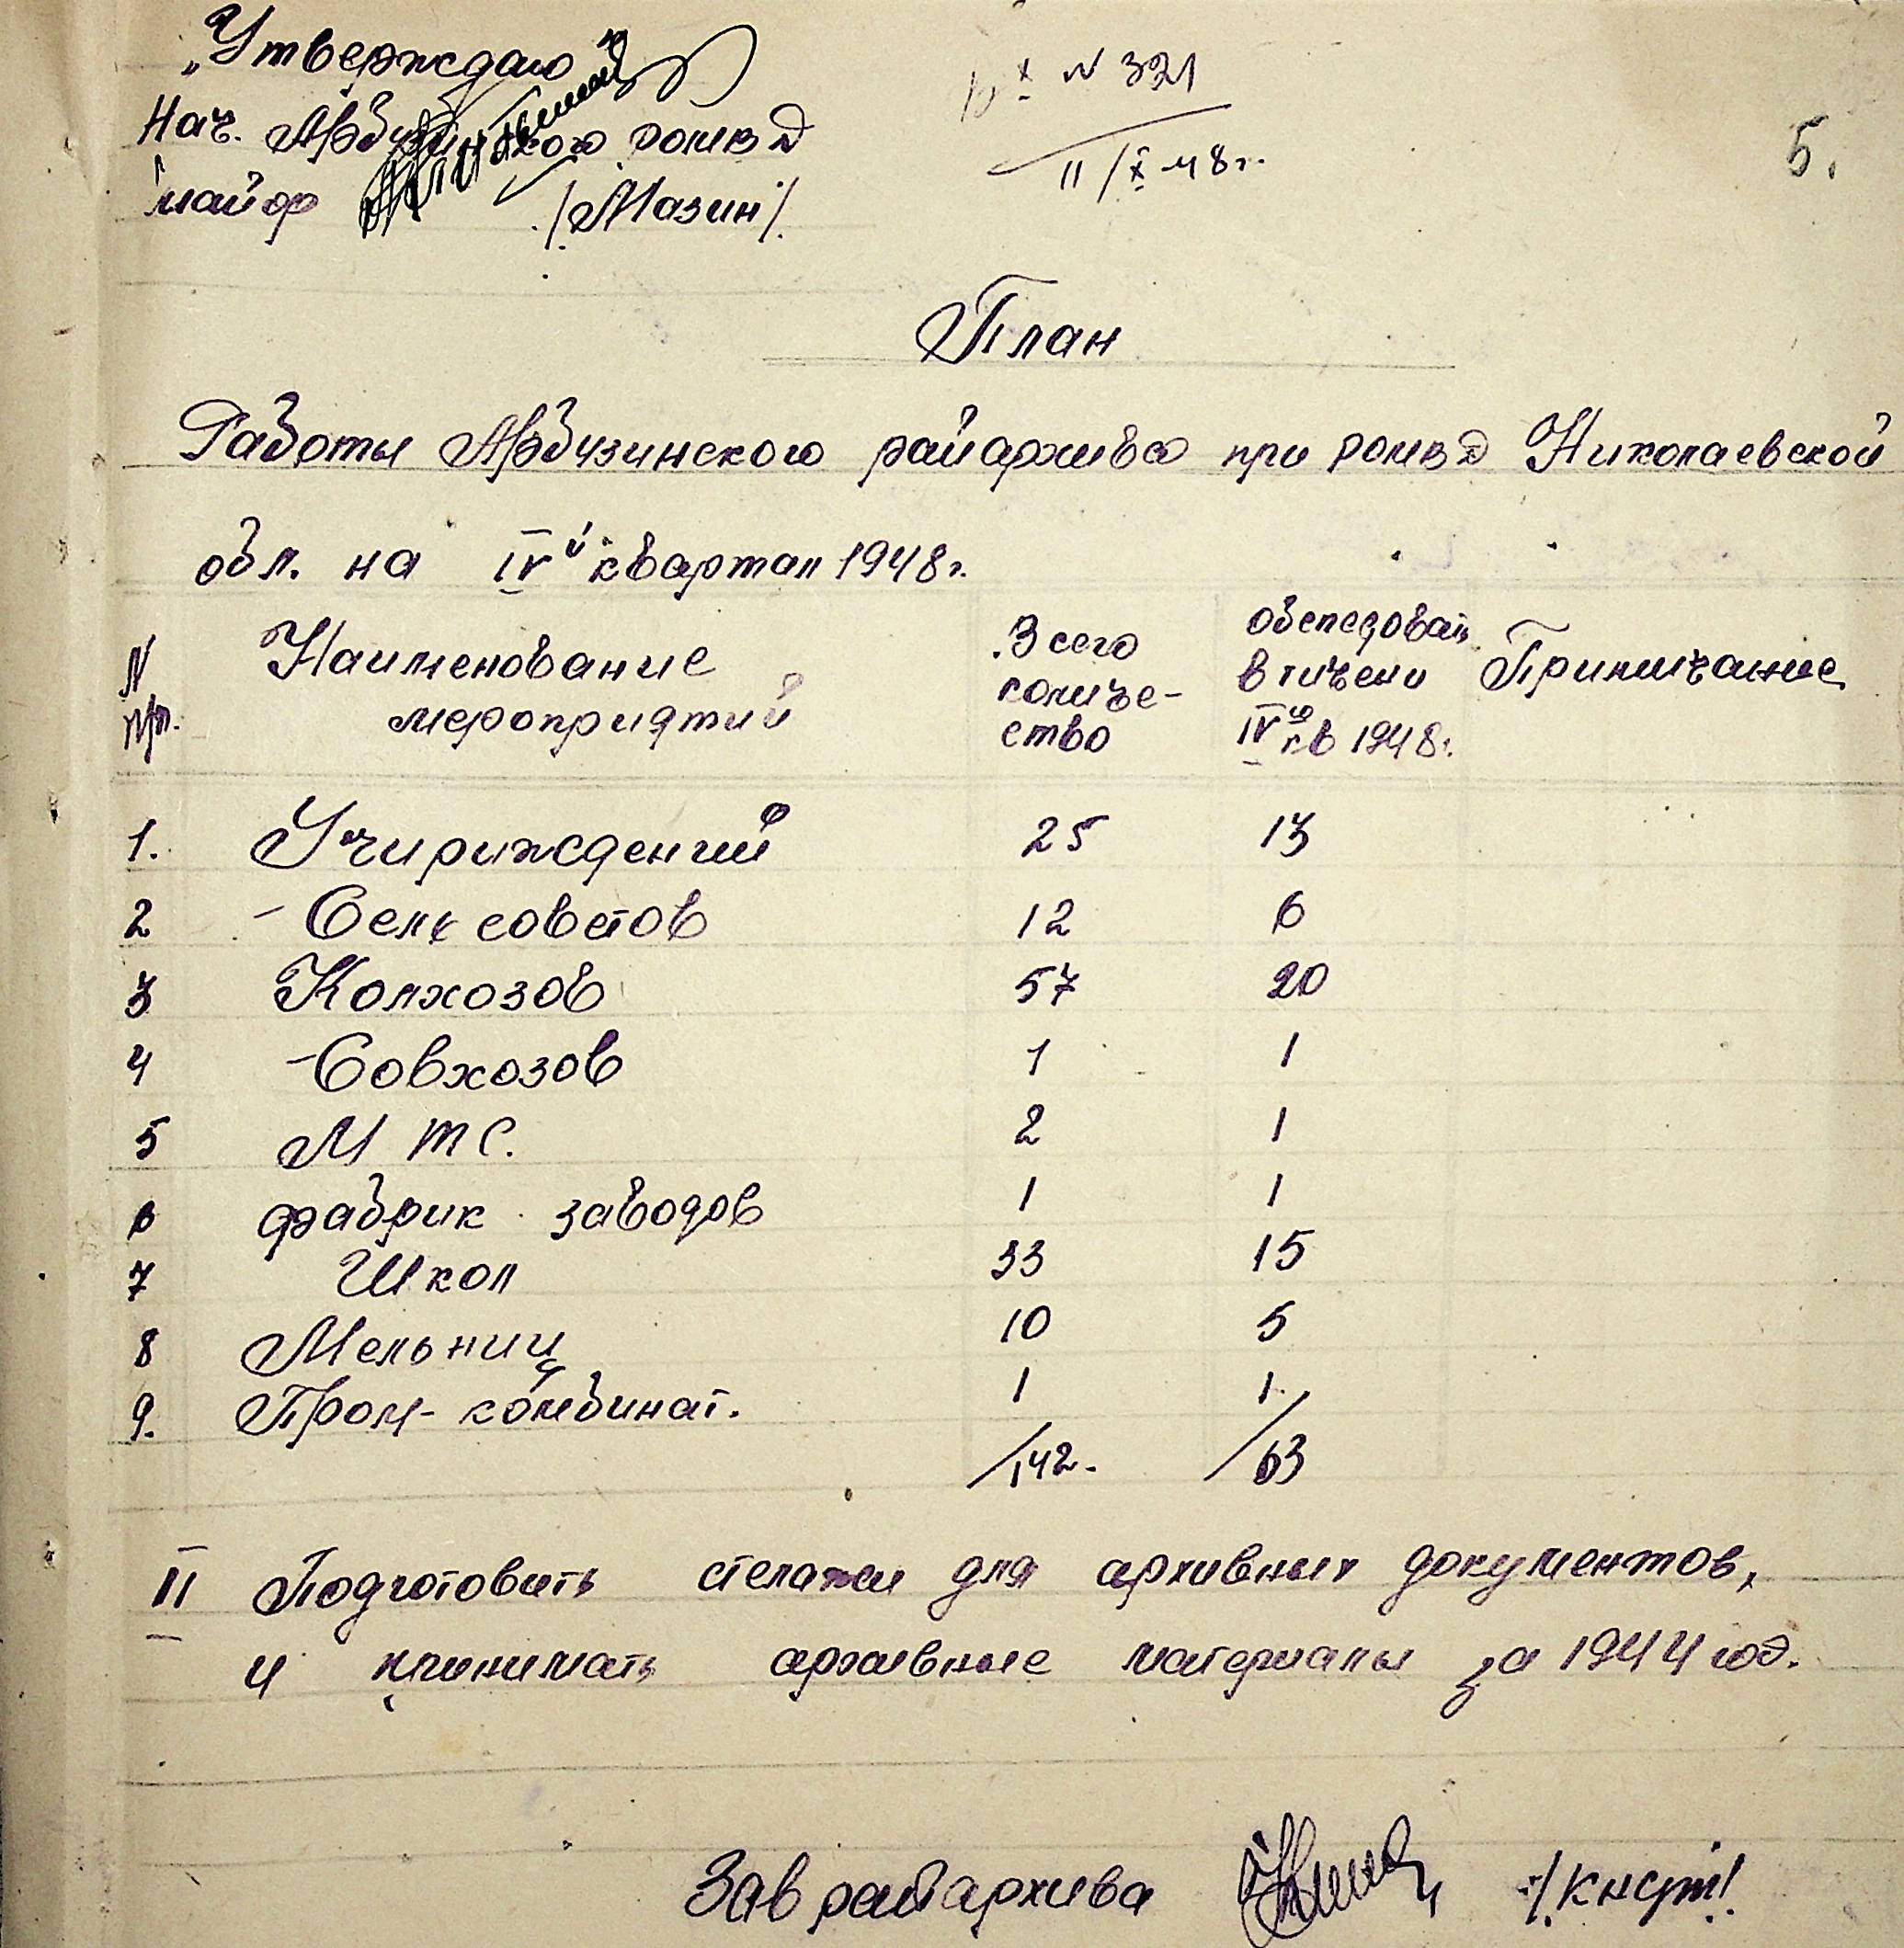 „Утверждаю"
Нач. Арбузинского РОМВД
майор /Мазин/
Вх N 321
11/X 48г.
5.
План
Работы Арбузинского райархива при РОМВД Николаевской
обл. на IVй квартал 1948г.
N п/п. Наименование мероприятий Всего количество обследовать в тичени IVго кв 1948г. Примичание
1. Учириждений 25 13
2 - Сельсоветов 12 6
3 Колхозов 57 20
4 - Совхозов 1 1
5 М Т С. 2 1
6 фабрик заводов 1 1
7 Школ 33 15
8 Мельниц 10 5
9. Пром-комбинат. 1 1
/142. /63
II Подготовить стелажи для архивных документов,
и принимать архивные материалы за 1944 год.
Зав райархива